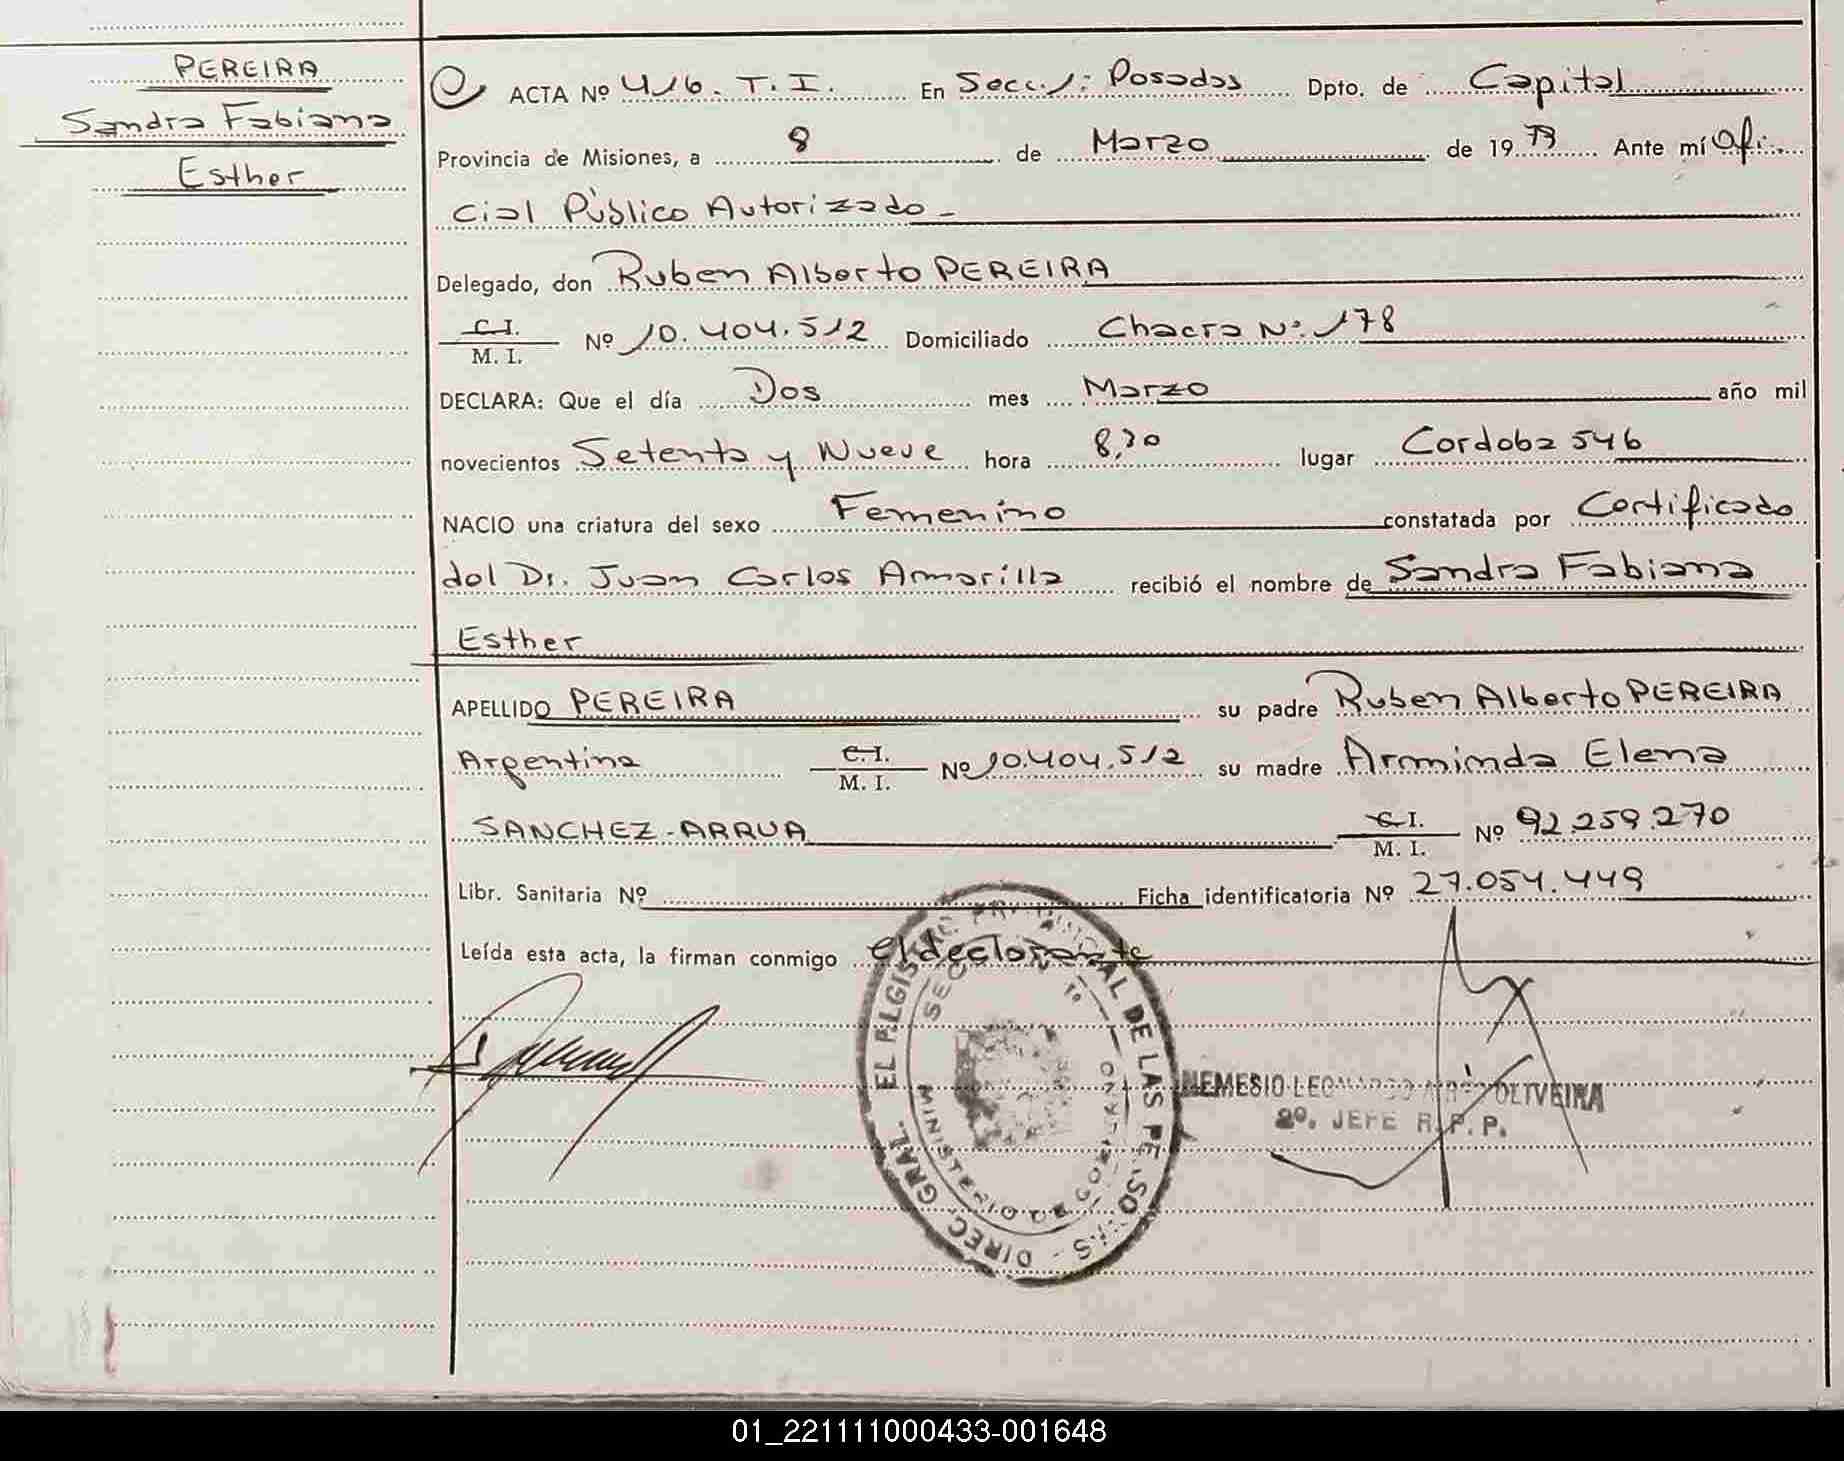 PEREIRA
Sandra Fabiana
Esther
ACTA Nº 416. T. I. En Secc. 1: Posadas Dpto. de Capital
Provincia de Misiones, a 8 de Marzo de 19 79 Ante mí Ofi-
cial Público Autorizado -
Delegado, don Ruben Alberto PEREIRA
C.I.
M. I. Nº 10.404.512 Domiciliado Chacra Nº 178
DECLARA: Que el día Dos mes Marzo año mil
novecientos Setenta y Nueve hora 8,30 lugar Cordoba 546
NACIO una criatura del sexo Femenino constatada por Certificado
del Dr. Juan Carlos Amarilla recibió el nombre de Sandra Fabiana
Esther
APELLIDO PEREIRA su padre Ruben Alberto PEREIRA
Argentina C.I.
M. I. Nº 10.404.512 su madre Arminda Elena
SANCHEZ-ARRUA C.I.
M. I. Nº 92.259.270
Libr. Sanitaria Nº Ficha identificatoria Nº 27.054.449
Leída esta acta, la firman conmigo el declarante
DIREC. GRAL. DE LAS
MINISTERIO DE
NEMESIO OLIVEIRA
2º. JEFE R. P. P.
01_221111000433-001648